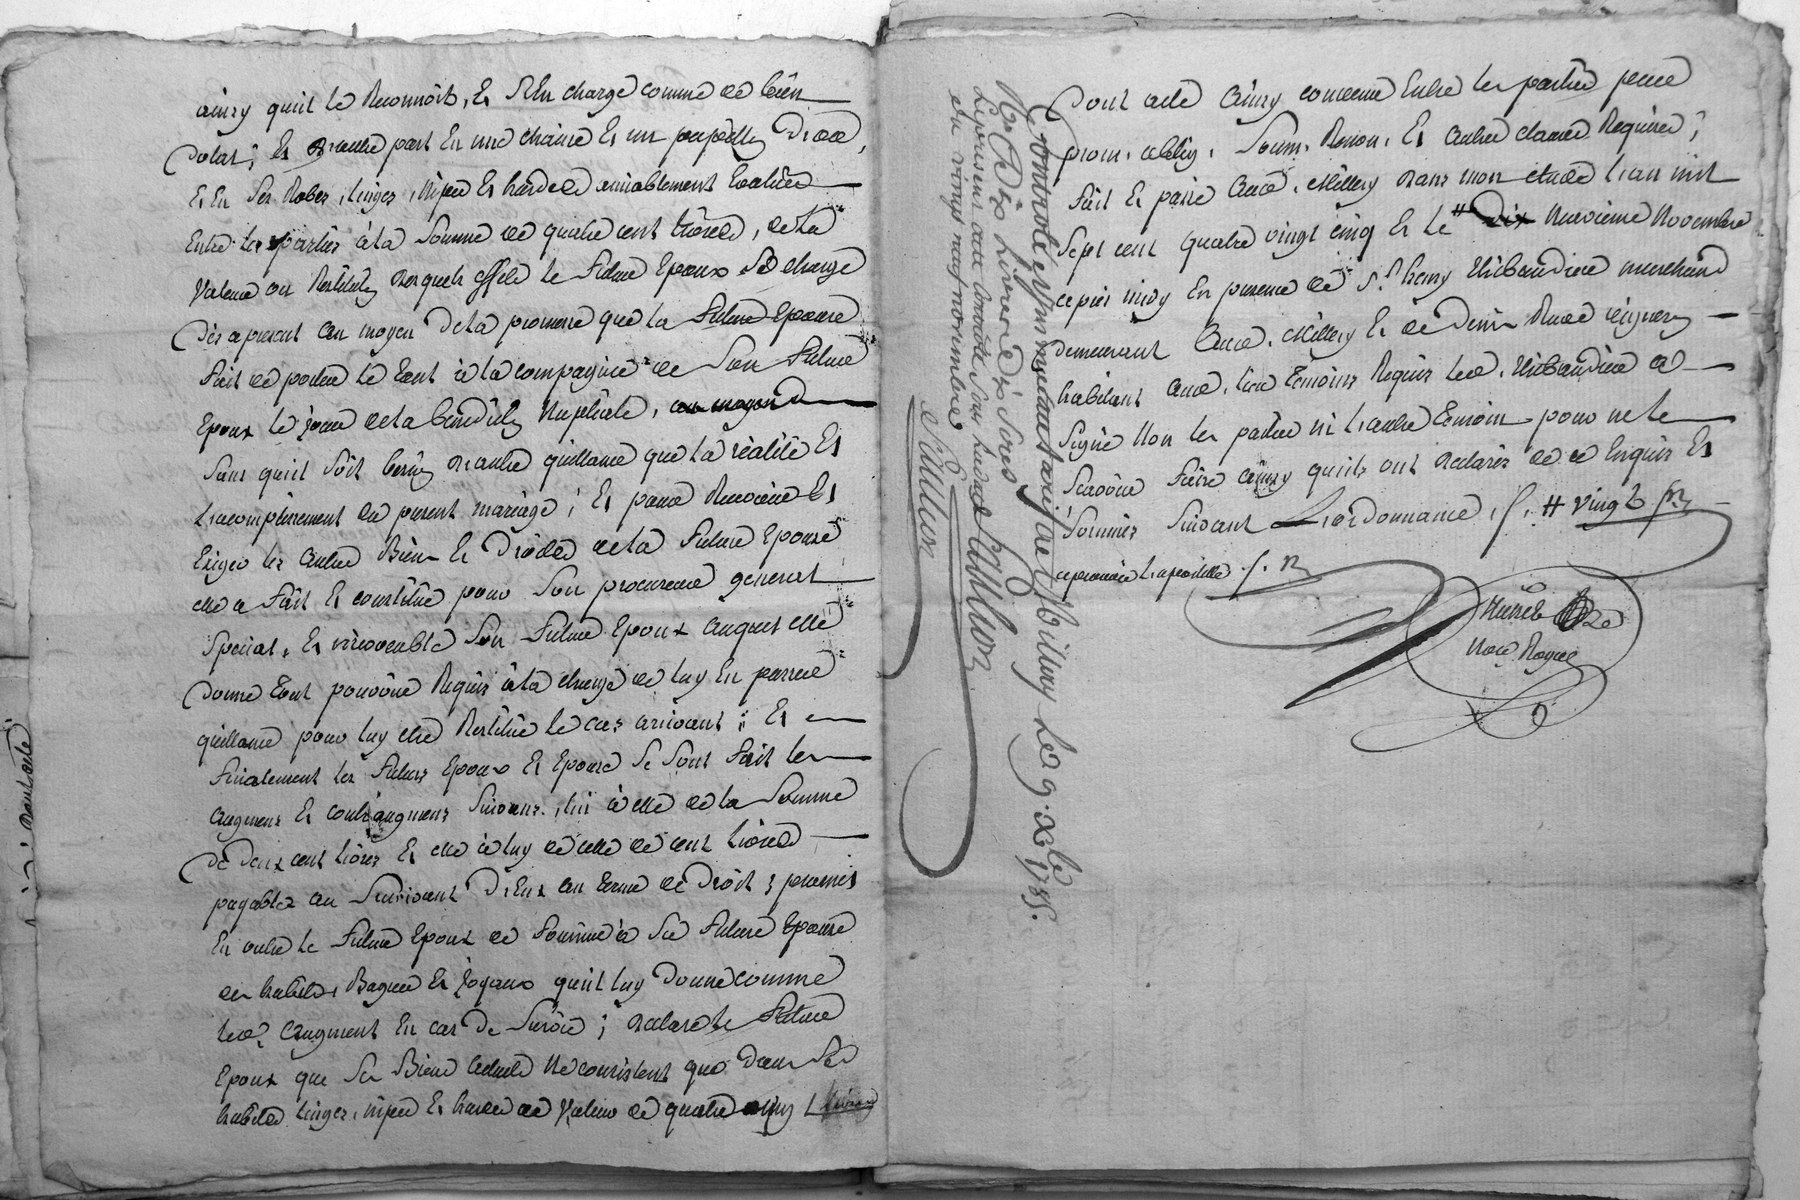 ainsy quil le Reconnoit, Et s'En charge comme de bien
Dotal; Et d'autre part En une chaine Et un
Et En ses Robes, linges, nipes Et hardes amiablement Evalués
Entre les parties à la somme de quatre cent livres, de la
Valeur ou Restitution desquels effets le futur Epoux se charge
Dès apresent au moyen de la promesse que la future Epouse
fait de porter le tout à la compagnie de son futur
Epoux le jour de la bénédiction nuptiale, au moyen de
sans quil soit besoin d'autre quittance que la réalité Et
L'accomplissement du present mariage; Et pour Recevoir Et
Exiger les autres Biens Et Droits de la future Epouse
elle a fait Et constitué pour son procureur general
special, Et irrévocable son futur Epoux auquel elle
Donne tout pouvoir Requis à la charge de luy En passer
quittance pour luy etre Restitué le cas arrivant; Et
finalement les futurs Epoux Et Epouse se sont fait les
augment Et contraugment suivans, lui à elle de la somme
De Deux cent livres Et elle à luy de celle de cent livres
payables au survivant D'Eux au terme de Droit; promet
En outre le futur Epoux de fournir à sa future Epouse
des habits, Bagues Et joyaux quil luy Donne comme
led. augment En cas De survie; declare le futur
Epoux que ses Biens actuels ne consistent que Dans ses
habits linges, nipes Et hardes de Valeur de quatre vingt livres
Contrôlé Et Insinué au tarif de Millery le 9. Xbre 1785.
R. Dix livres dix sous
du vingt neuf novembre
Saulnon
Dont acte ainsy convenu Entre les parties sous
prom. oblig. soum. Renon. Et autres clauses Requises;
fait Et passé aud. Millery dans mon étude L'an mil
sept cent quatre vingt cinq Et le # Dix neuvieme Novembre
après midy En presence de s. Thibaudier marchand
demeurant aud. Millery Et de Denis vigneron
habitant aud. lieu temoins Requis led. Thibaudier a
signé non les parties ni L'autre temoin pour ne le
scavoir faire ainsy quils ont declarés de ce Enquis Et
sommés suivant L'ordonnance, # vingt
approuvé L'apostille
Nore Royal